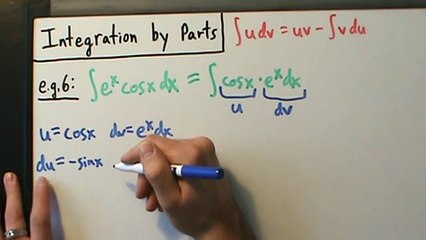 Integration by Parts ∫udv = uv - ∫vdu
e.g.6: ∫eˣcosxdx = ∫cosx·eˣdx
u dv
u = cosx dv = eˣdx
du = -sinx